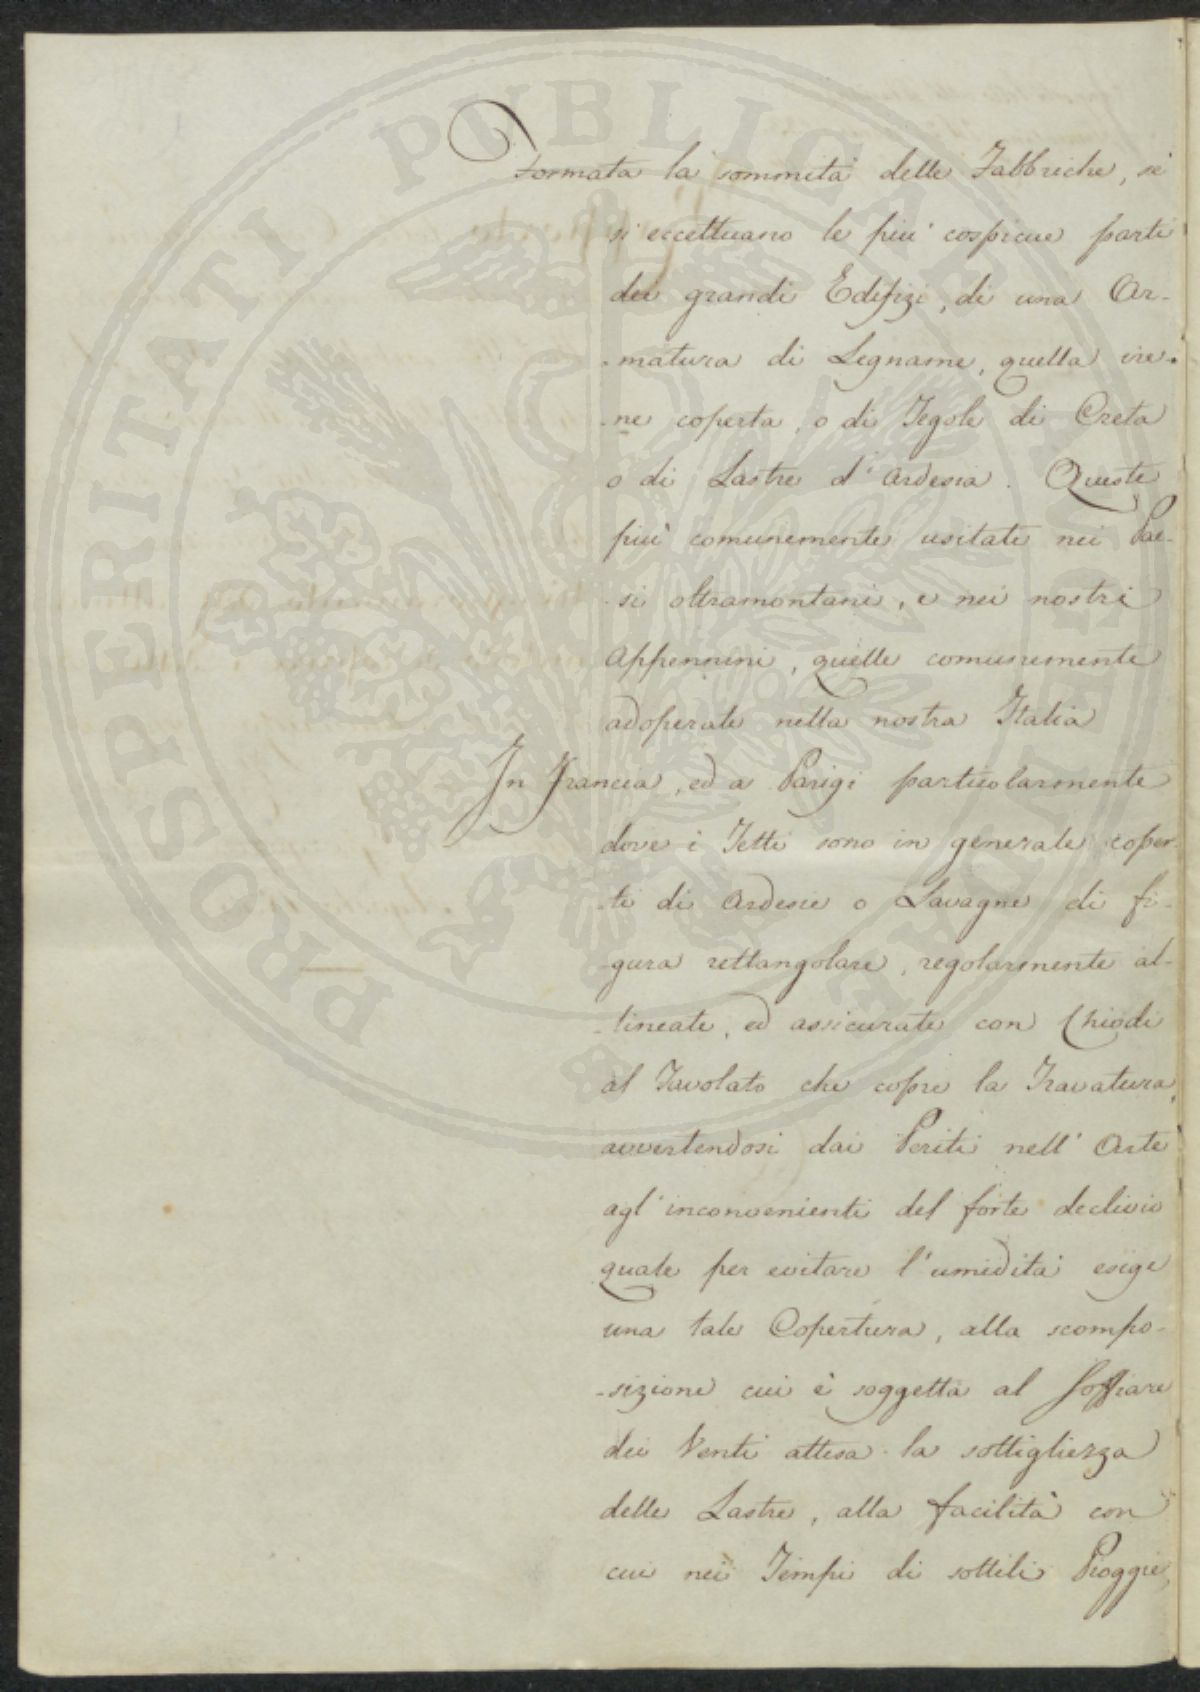 Formata la sommità delle Fabbriche, se
si eccettuano le più cospicue parti
dei grandi Edifizi, di una Ar-
-matura di Legname, quella vie-
-ne coperta, o di Tegole di Creta
o di Lastre d'Ardesia. Queste
più comunemente usitate nei Pae-
-si oltramontani, e nei nostri
Appennini, quelle comunemente
adoperate nella nostra Italia
In Francia, ed a Parigi particolarmente
dove i Tetti sono in generale coper-
-ti di Ardesie o Lavagne di fi-
-gura rettangolare, regolarmente al-
-lineate, ed assicurate con Chiodi
al Tavolato che copre la Travatura,
avvertendosi dai Periti nell'Arte
agl'inconvenienti del forte declivio
quale per evitare l'umidità esige
una tale Copertura, alla scompo-
-sizione cui è soggetta al Soffiare
dei Venti attesa la sottigliezza
delle Lastre, alla facilità con
cui nei Tempi di sottili Pioggie,
PROSPERITATI PUBLICAE